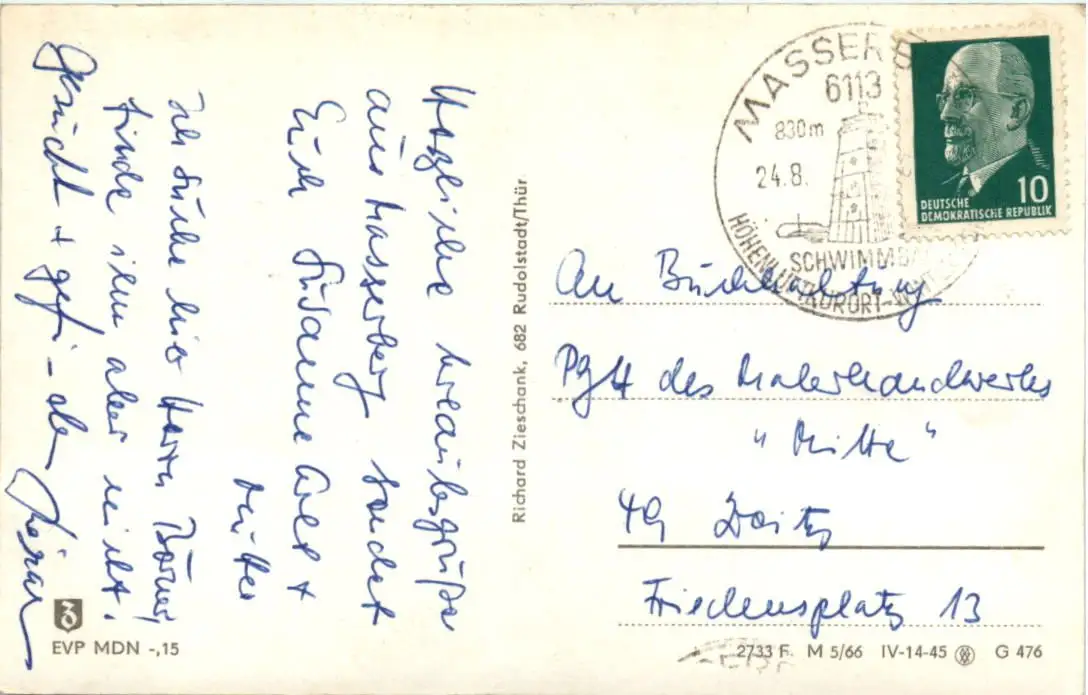 Herzliche Urlaubsgrüße
aus Masserberg sendet
Euch Susanne Arlt +
Mutter
Ich suche hier Herrn Börner,
finde ihn aber nicht!
Gesucht + gefu-den
Richard Zieschank, 682 Rudolstadt/Thür.
MASSERB
6113
830m
24.8.
SCHWIMMBA
HÖHENLUFTKURORT-WINT
10
DEUTSCHE
DEMOKRATISCHE REPUBLIK
An Buchhaltung
PGH des Malerhandwerks
"Mitte"
49 Zeitz
Friedensplatz 13
EVP MDN -,15
2733 F. M 5/66 IV-14-45 G 476